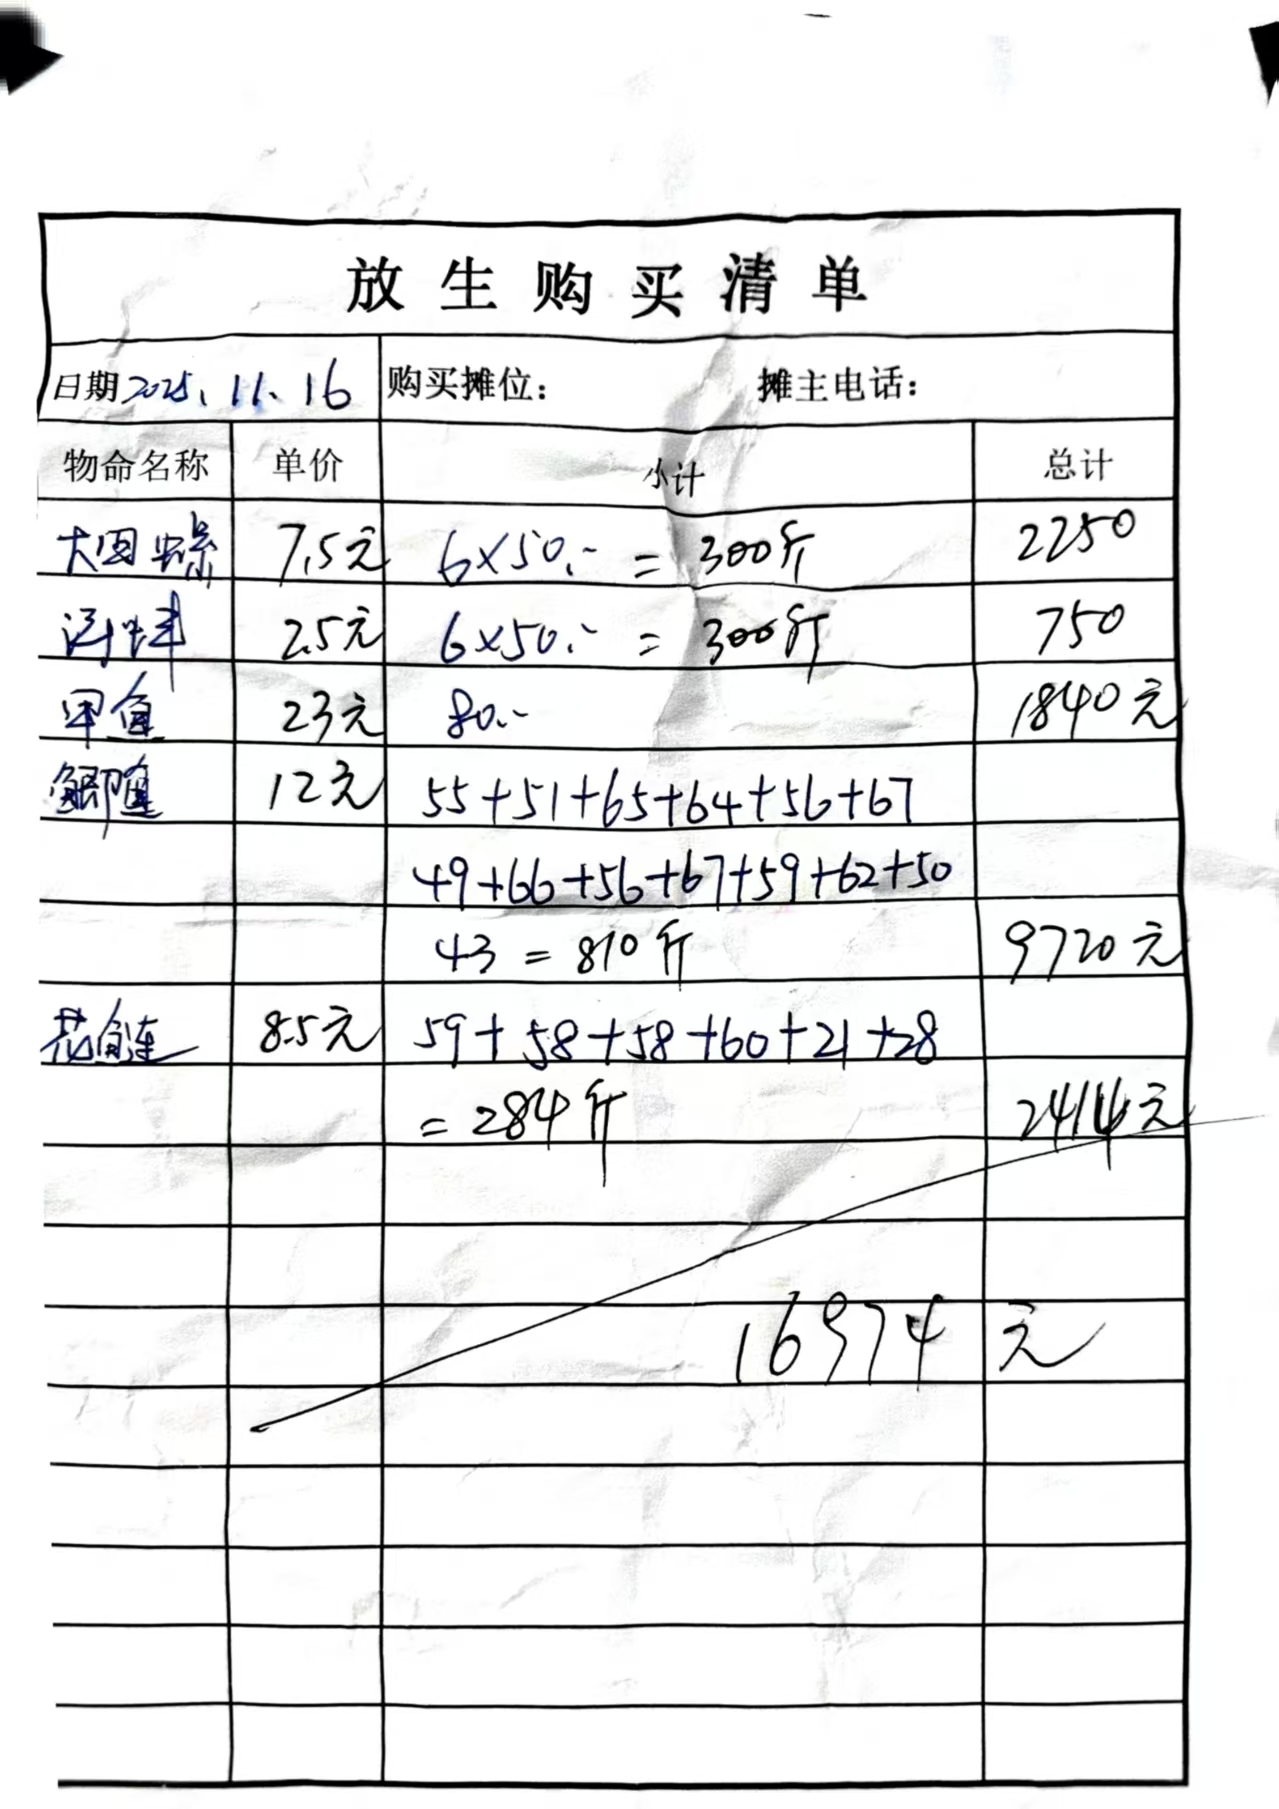 放生购买清单
日期2025.11.16 购买摊位： 摊主电话：
物命名称 单价 小计 总计
大田螺 7.5元 6×50.- = 300斤 2250
河蚌 2.5元 6×50.- = 300斤 750
甲鱼 23元 80.- 1840元
鲫鱼 12元 55+51+65+64+56+67
49+66+56+67+59+62+50
43 = 810斤 9720元
花鲢 8.5元 59+58+58+60+21+28
= 284斤 2414元
16974元